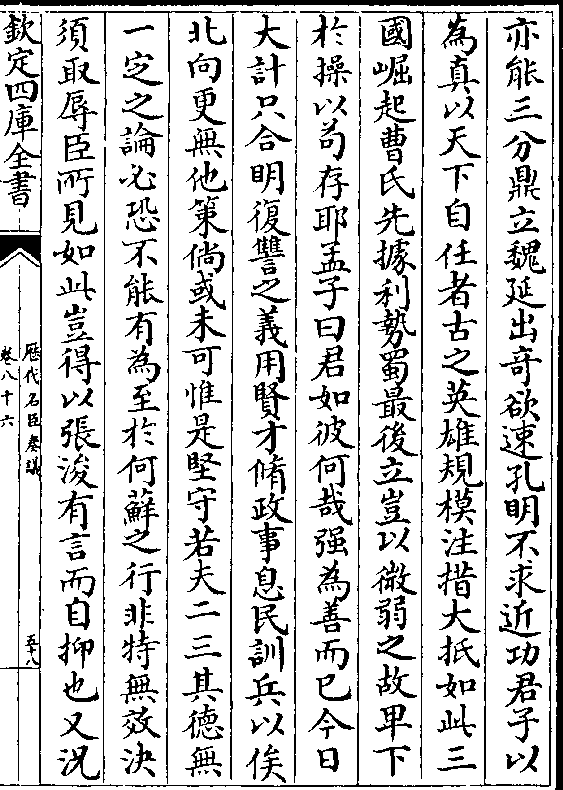 亦能三分鼎立魏延出竒欲速孔明不求近功君子以
為真以天下自任者古之英雄規模注措大抵如此三
國崛起曹氏先據利勢蜀最後立豈以微弱之故卑下
於操以茍存耶孟子曰君如彼何哉强為善而已今日
大計只合明復讐之義用賢才脩政事息民訓兵以俟
北向更無他策倘或未可惟是堅守若夫二三其德無
一定之論必恐不能有為至於何蘇之行非特無效決
須取辱臣所見如此豈得以張浚有言而自抑也又況
欽定四庫全書
歴代名臣奏議
卷八十六
五十八